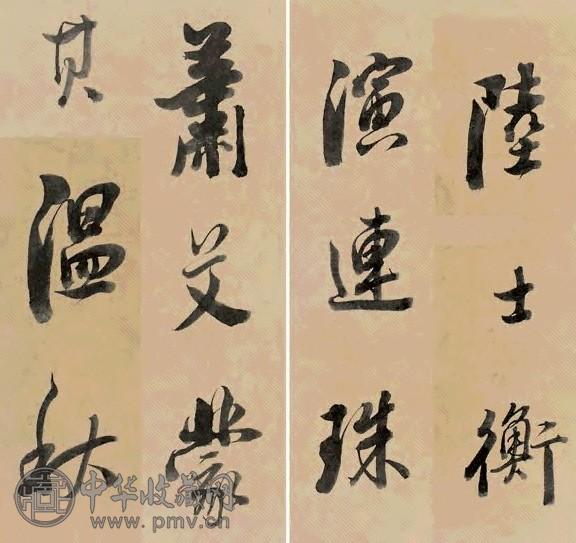 陸士衡
演連珠
蕭艾蒙
其温秋
中华收藏网
www.pmv.cn